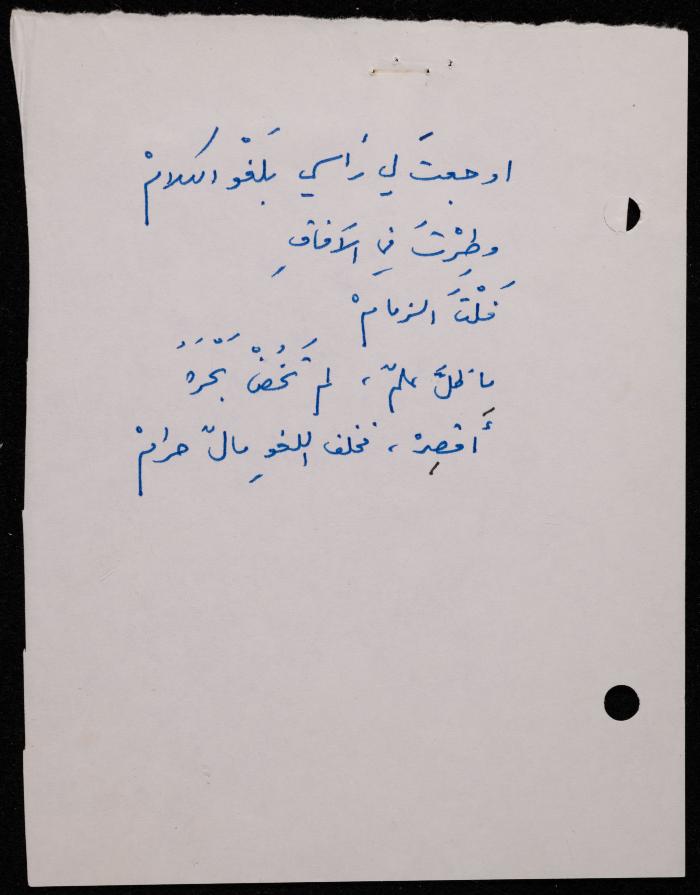 اوجعتَ لي رَأسي بَلَغْو الكلامْ
وطِرْتَ في الآفاقِ
فَلْتَ الزمامْ
ما ظلَّ علمٌ، لم تَخُضْ بَحْرَهُ
أَقصِرْ، فخلف اللغوِ مالٌ حرامْ